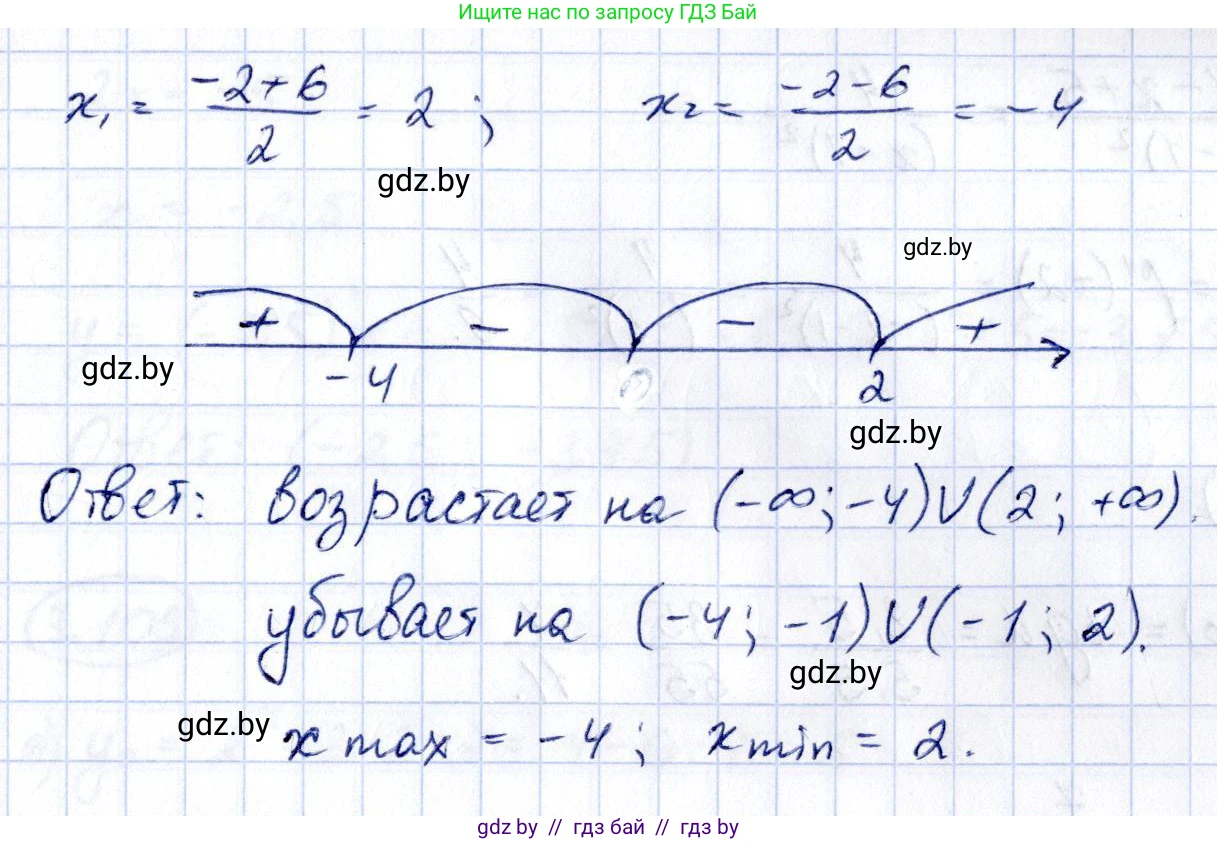 Ищите нас по запросу ГДЗ Бай
x₁ = (-2+6)/2 = 2 ; x₂ = (-2-6)/2 = -4
gdz.by
gdz.by
+ - - +
gdz.by
-4 2
gdz.by
Ответ: возрастает на (-∞; -4)∪(2; +∞).
убывает на (-4; -1)∪(-1; 2).
gdz.by
gdz.by
x max = -4; x min = 2.
gdz.by // гдз бай // гдз by